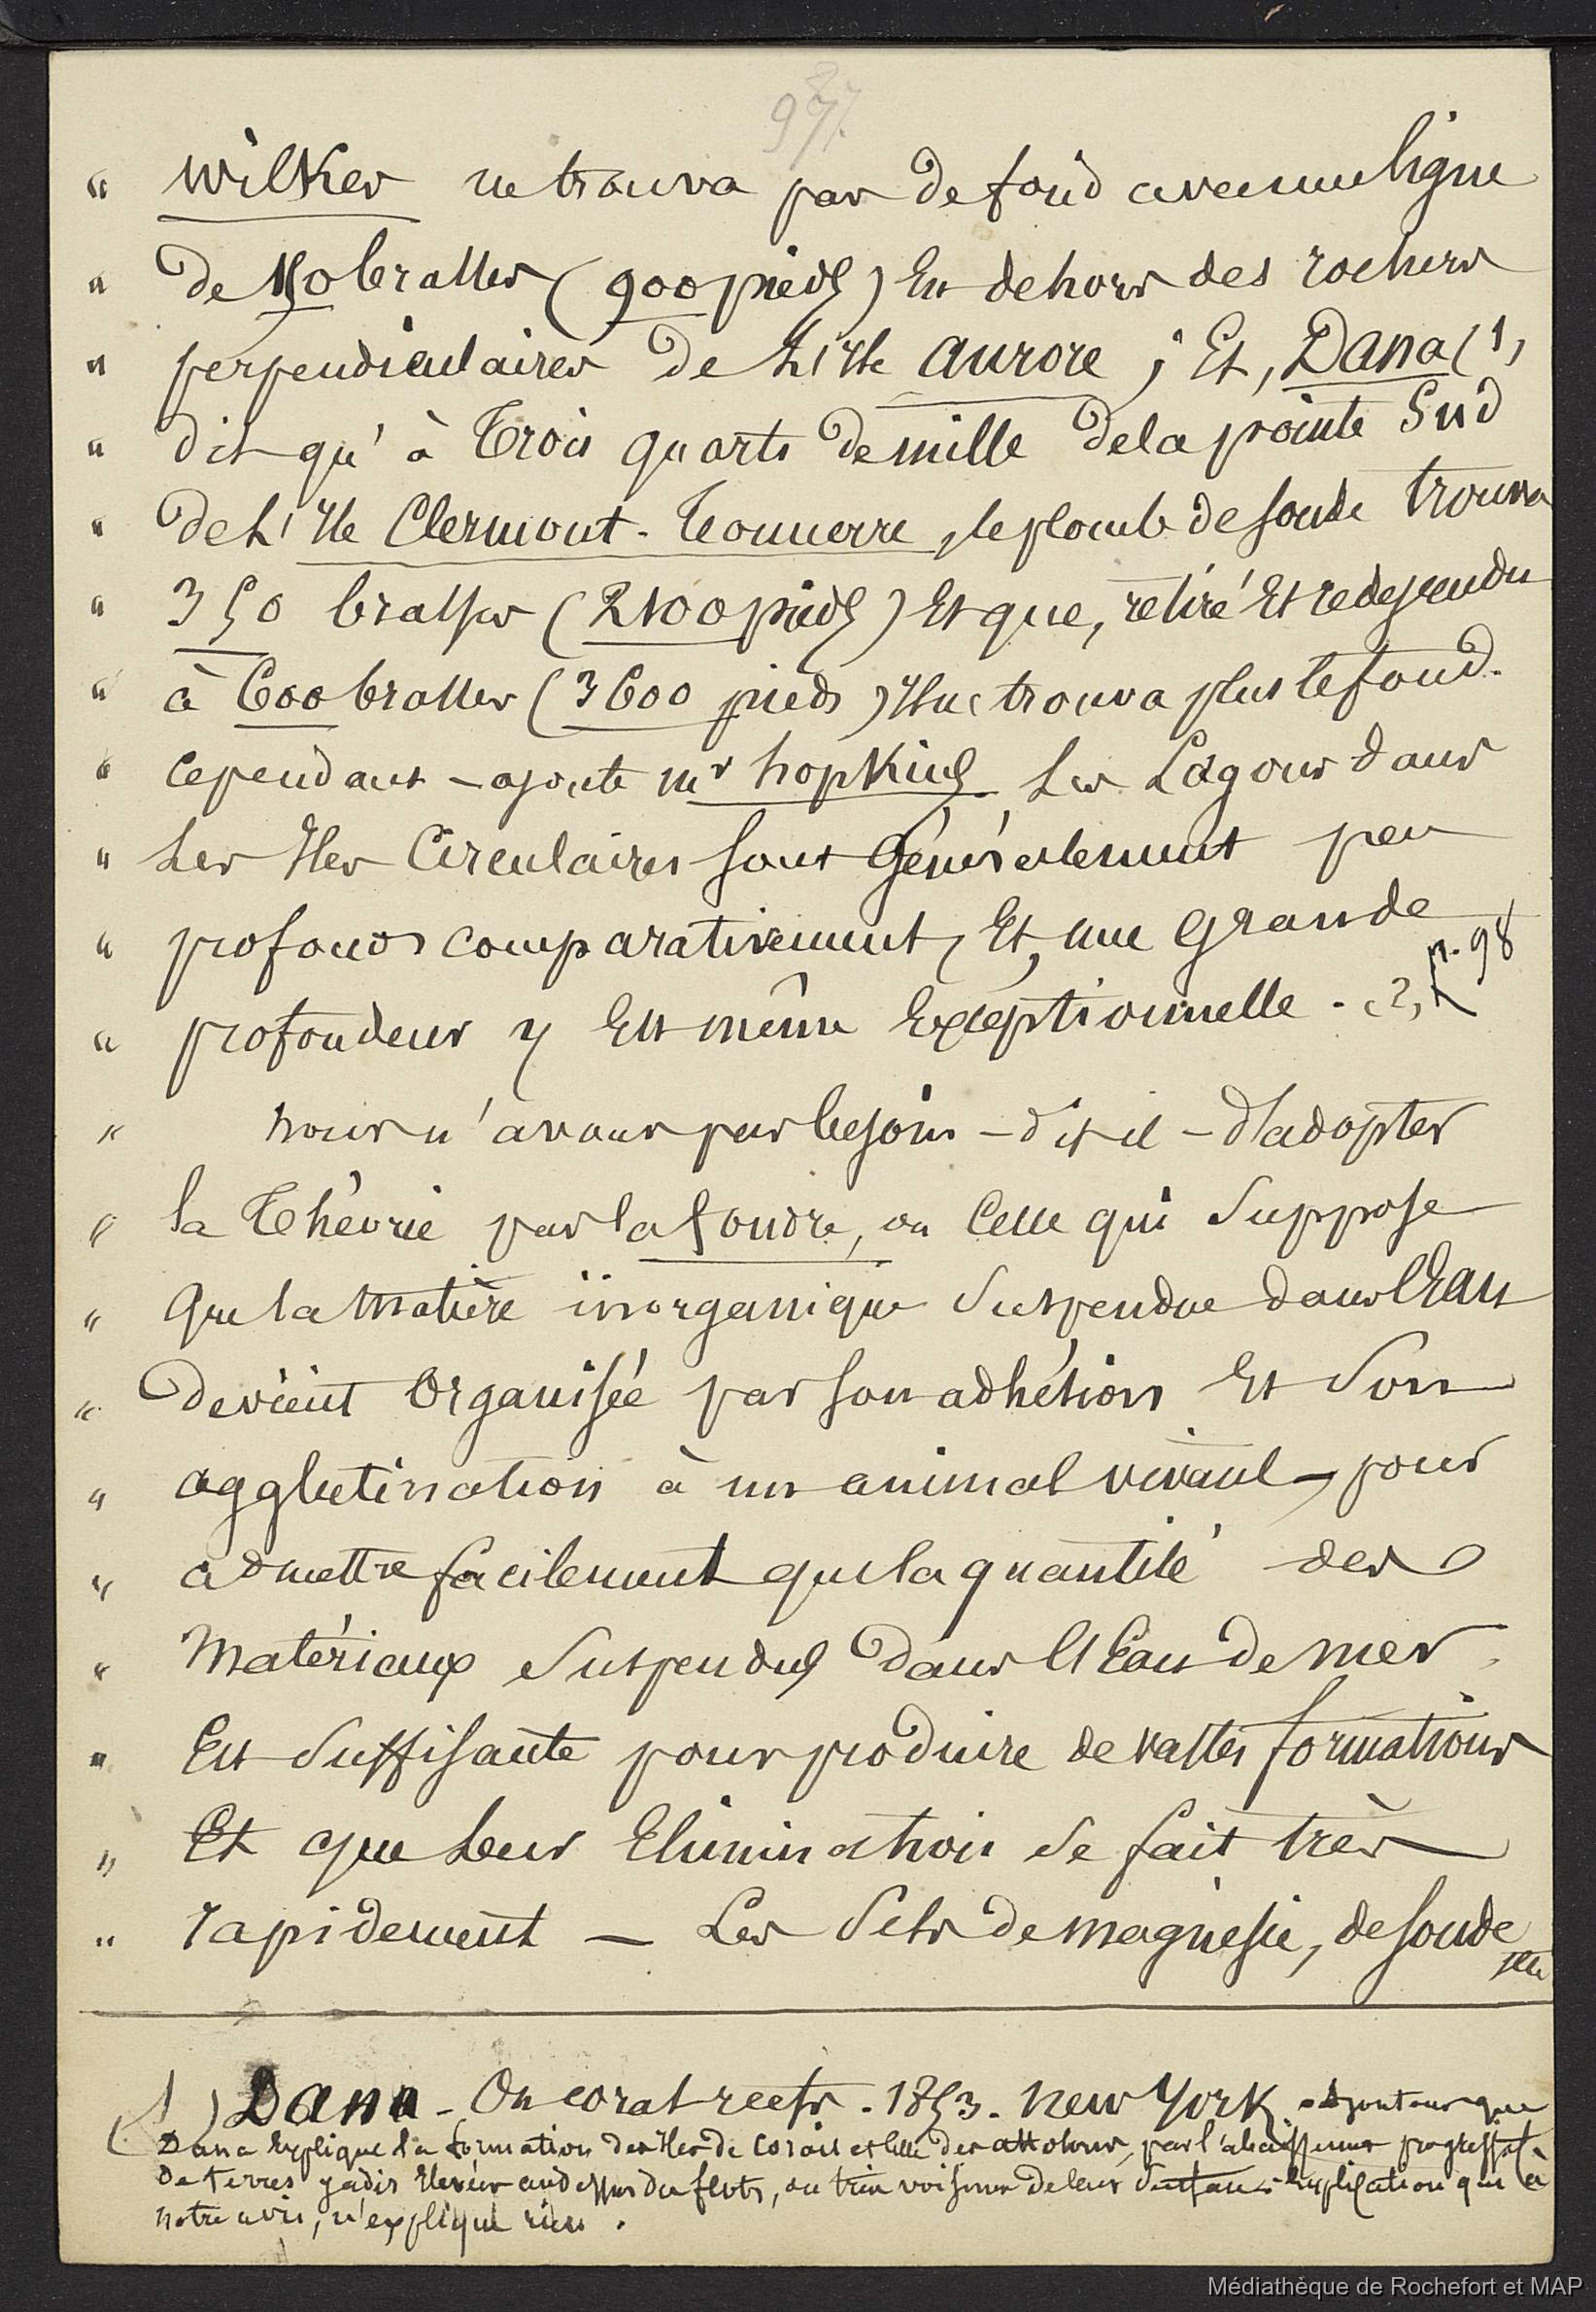 97.
" Wilkes ne trouva pas de fond avec une ligne
" de 150 brasses (900 pieds) En dehors des rochers
" perpendiculaires de L'Ile Aurore ; Et, Dana (1)
" dit qu'à Trois quarts de mille de la pointe Sud
" de L'Ile Clermont-Tonnerre, le plomb de sonde trouva
" 350 brasses (2100 pieds) Et que, retiré Et redescendu
" à 600 brasses (3600 pieds) Il ne trouva plus le fond.
" Cependant – ajoute Mr hopkins Les Lagons dans
" Les Iles Circulaires sont Généralement peu
" profonds comparativement, Et, une Grande
" profondeur y Est même Exceptionnelle. (2) p. 98
" nous n'avons pas besoin – dit-il – d'adopter
" la Théorie par la foudre, ou Celle qui Suppose
" Que la Matière inorganique Suspendue dans l'Eau
" devient Organisée par son adhésion Et Son
" agglutination à un animal vivant, pour
" admettre facilement que la quantité des
" Matériaux Suspendus dans l'Eau de mer
" Est Suffisante pour produire de vastes formations
" Et que Leur Elimination se fait très
" rapidement — Les Sels de magnésie, de soude
(1) Dana - On coral reefs. 1853. New York. ajoutons que
Dana Explique La formation des Iles de Corail et Celle des attolons, par l'abaissement progressif
De terres jadis Elevées au dessus du flots, ou très voisines de leur Surface. Explication qui à
notre avis, n'explique rien.
Médiathèque de Rochefort et MAP